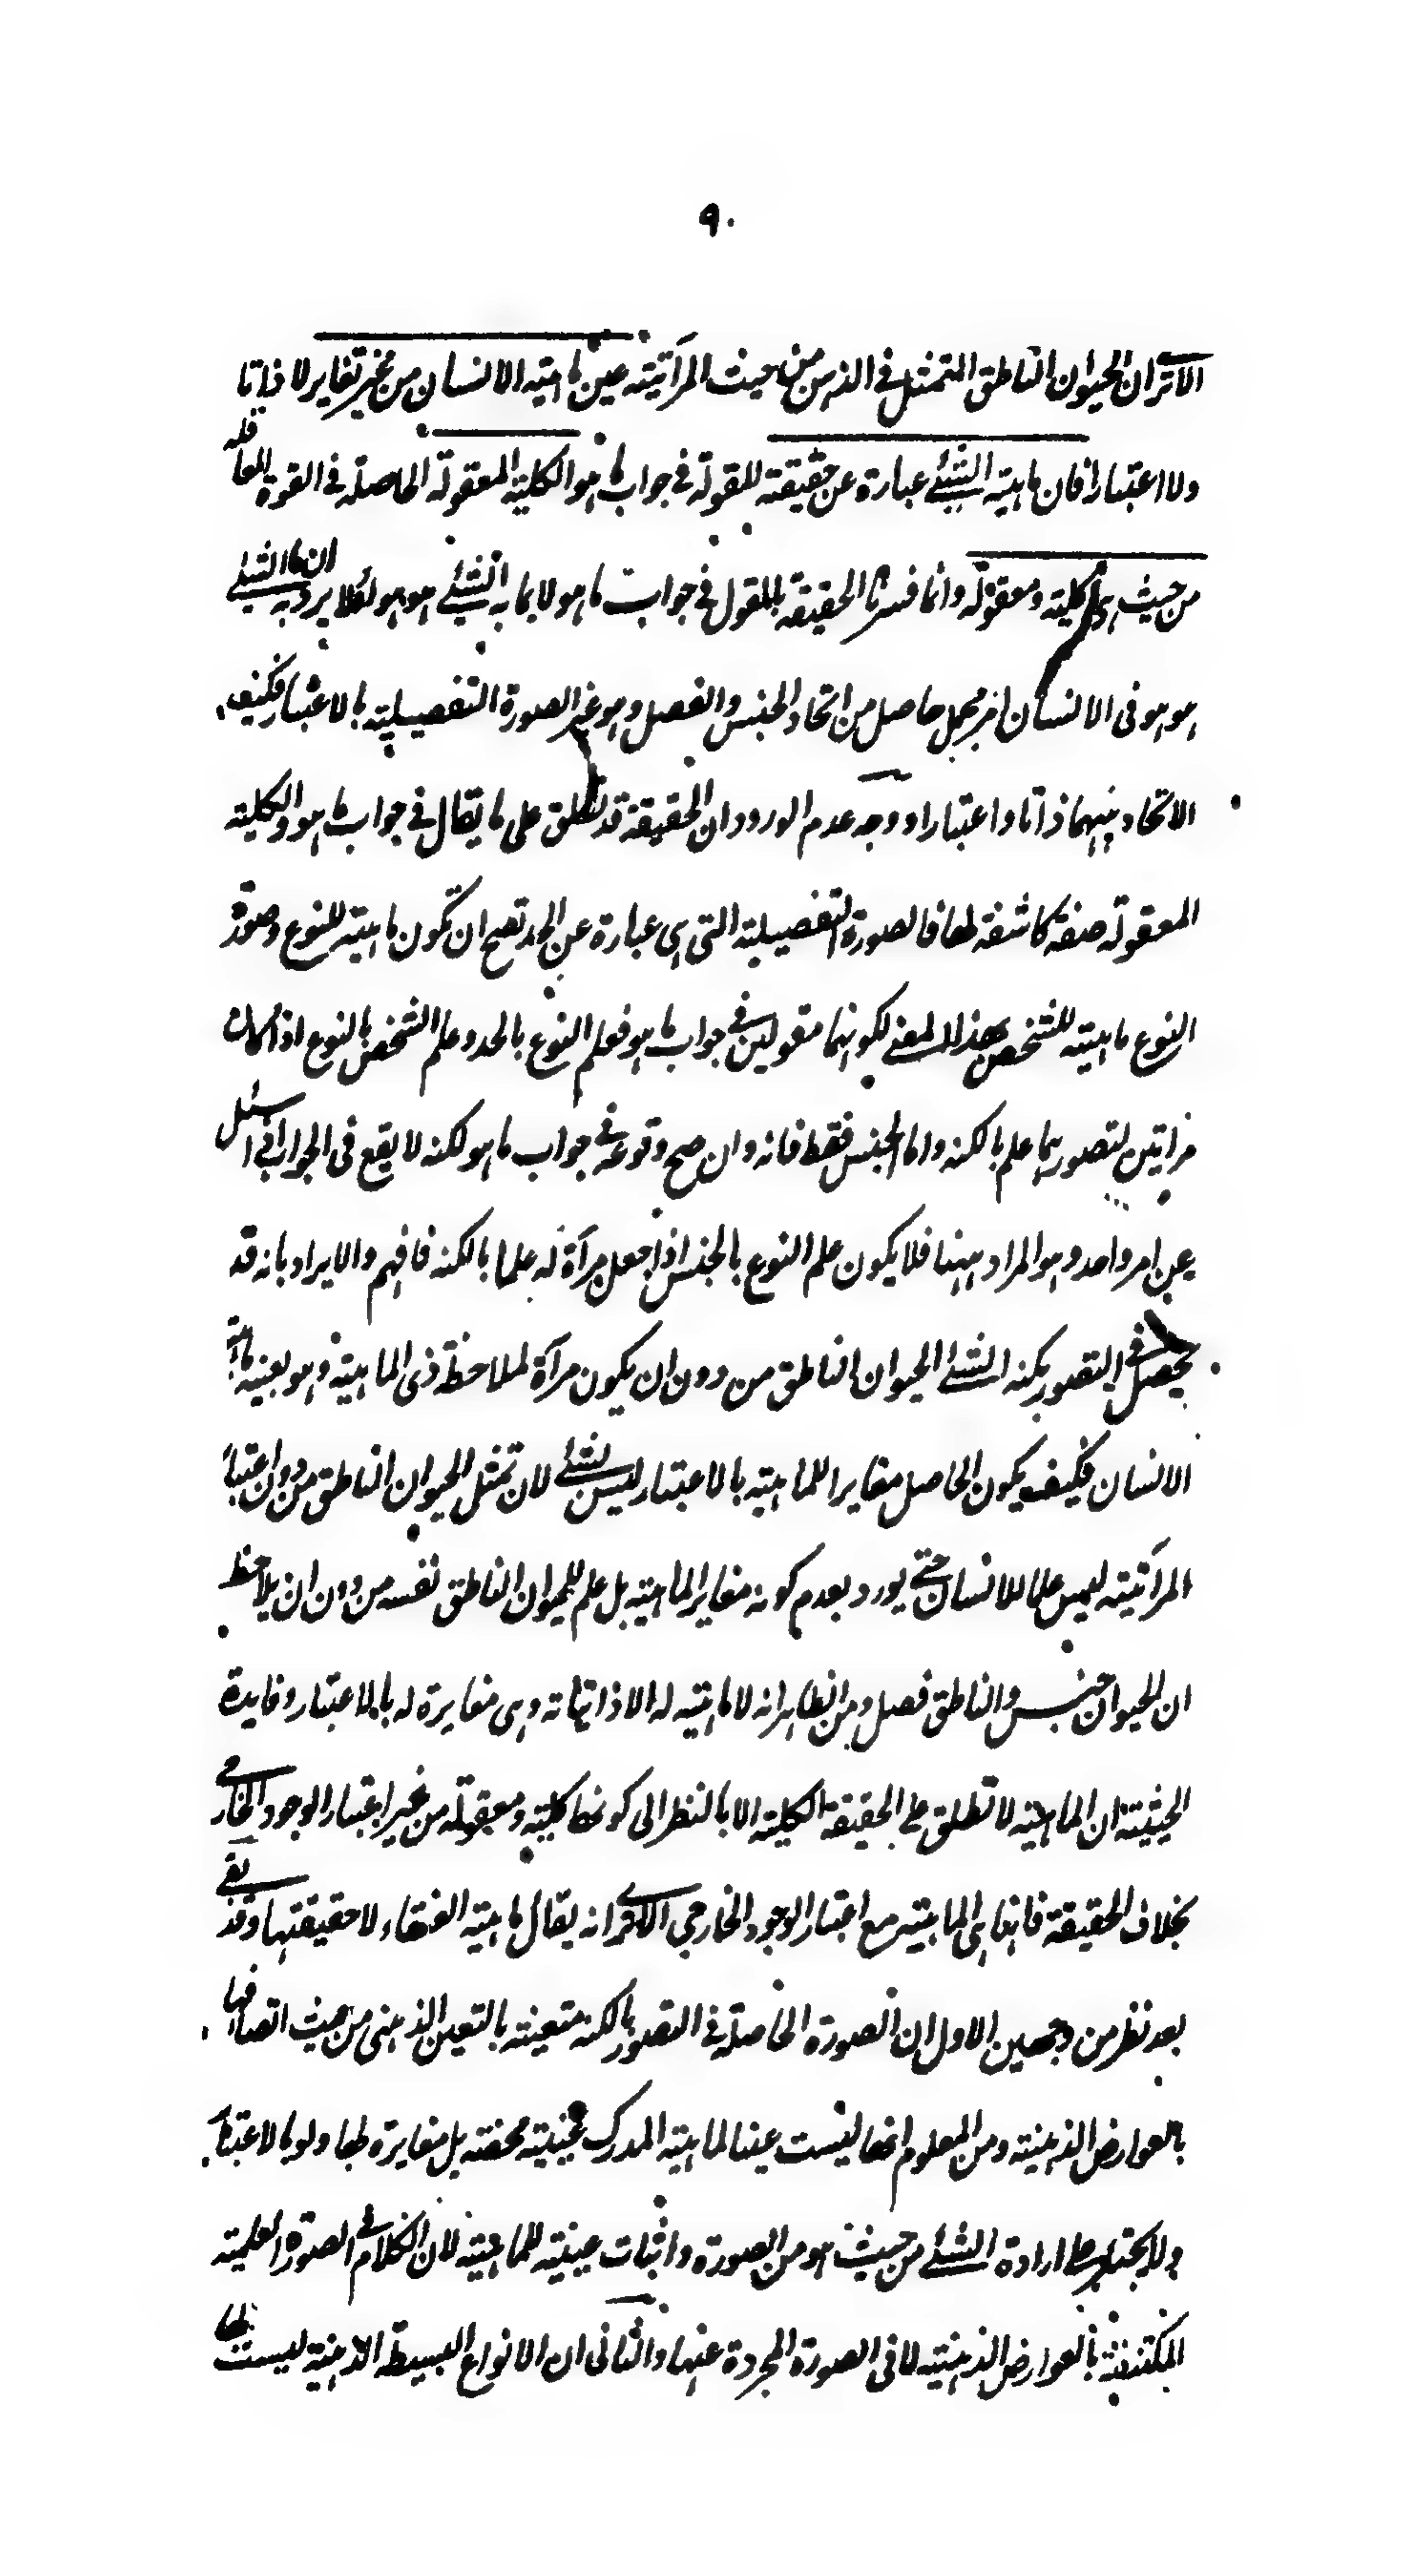 ٩٠
الا ترى ان الحيوان الناطق المتمثل فى الذهن من حيث المرآتية عين ماهية الانسان من غير تغاير لا ذاتا
ولا اعتبارا فان ماهية الشئ عبارة عن حقيقته المقولة فى جواب ما هو الكلية المعقولة الحاصلة فى القوة العاقلة
من حيث هى كلية ومعقولة وانما فسرنا الحقيقة بالمقول فى جواب ما هو لا بما به الشئ هو هو لئلا يرد ان ما به الشئ
هو هو فى الانسان امر مجمل حاصل من اتحاد الجنس والفصل وهو غير الصورة التفصيلية بالاعتبار فكيف
الاتحاد بينهما ذاتا واعتبارا ووجه عدم الورود ان الحقيقة قد تطلق على ما يقال فى جواب ما هو والكلية
المعقولة صفة كاشفة لها فالصورة التفصيلية التى هى عبارة عن الحد تصح ان تكون ماهية للنوع وصورة
النوع ماهية للشخص بهذا المعنى لكونهما مقولين فى جواب ما هو فعلم النوع بالحد وعلم الشخص بالنوع اذا كانا
مرآتين لتصورهما علم بالكنه واما الجنس فقط فانه وان صح وقوعه فى جواب ما هو لكنه لا يقع فى الجواب اذا سئل
عن امر واحد وهو المراد ههنا فلا يكون علم النوع بالجنس اذا جعل مرآة له علما بالكنه فافهم والايراد بانه قد
يحصل فى التصور بكنه الشئ الحيوان الناطق من دون ان يكون مرآة لملاحظة ذى الماهية وهو بعينه ماهية
الانسان فكيف يكون الحاصل مغايرا للماهية بالاعتبار ليس بشئ لان تمثل الحيوان الناطق من دون اعتبار
المرآتية ليس علما للانسان حتى يورد بعدم كونه مغاير الماهية بل علم للحيوان الناطق نفسه من دون ان يلاحظ
ان الحيوان جنس والناطق فصل ومن الظاهر انه لا ماهية له الا ذاتياته وهى مغايرة له بالاعتبار وفايدة
الحيثية ان الماهية لا تطلق على الحقيقة الكلية الا بالنظر الى كونها كلية ومعقولة من غير اعتبار الوجود الخارجى
بخلاف الحقيقة فانها هى الماهية مع اعتبار الوجود الخارجى الا ترى انه يقال ماهية العنقاء لا حقيقتها وقد بقى
بعد نظر من وجهين الاول ان الصورة الحاصلة فى التصور بالكنه متعينة بالتعين الذهنى من حيث اتصافها
بالعوارض الذهنية ومن المعلوم انها ليست عينا لماهية المدرك عينية محضة بل مغايرة لها ولو بالاعتبار
ولا يجترء على ارادة الشئ من حيث هو من الصورة واثبات عينية للماهية لان الكلام فى الصورة العلمية
المكتنفة بالعوارض الذهنية لا فى الصورة المجردة عنها والثانى ان الانواع البسيطة الذهنية ليست لها